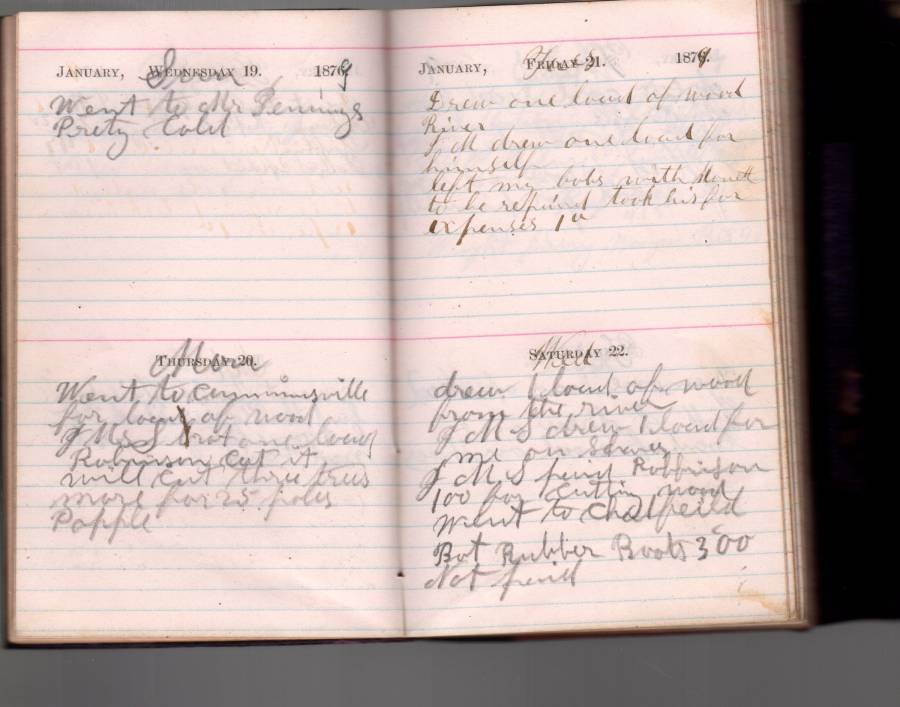 JANUARY, WEDNESDAY 19. 1879
Sun
Went to Mr Jennings
Prety Cold
THURSDAY 20.
Mon
Went to Cumminsville
for load of wood
J M S brot one load
Robinson cut it
will cut three trees
more for 25 poles
Popple
JANUARY, FRIDAY 21. 1879.
Tues
Drew one load of wood
River
J M drew one load for
himself
left my bobs with
to be repaird took his for
expenses 1
SATURDAY 22.
Wed
drew 1 load of wood
from the river
J M S drew 1 load for
me on
J M S paid Robbinson
100 for cutting wood
Went to Chatfeild
Bot Rubber Boots 300
Not paid